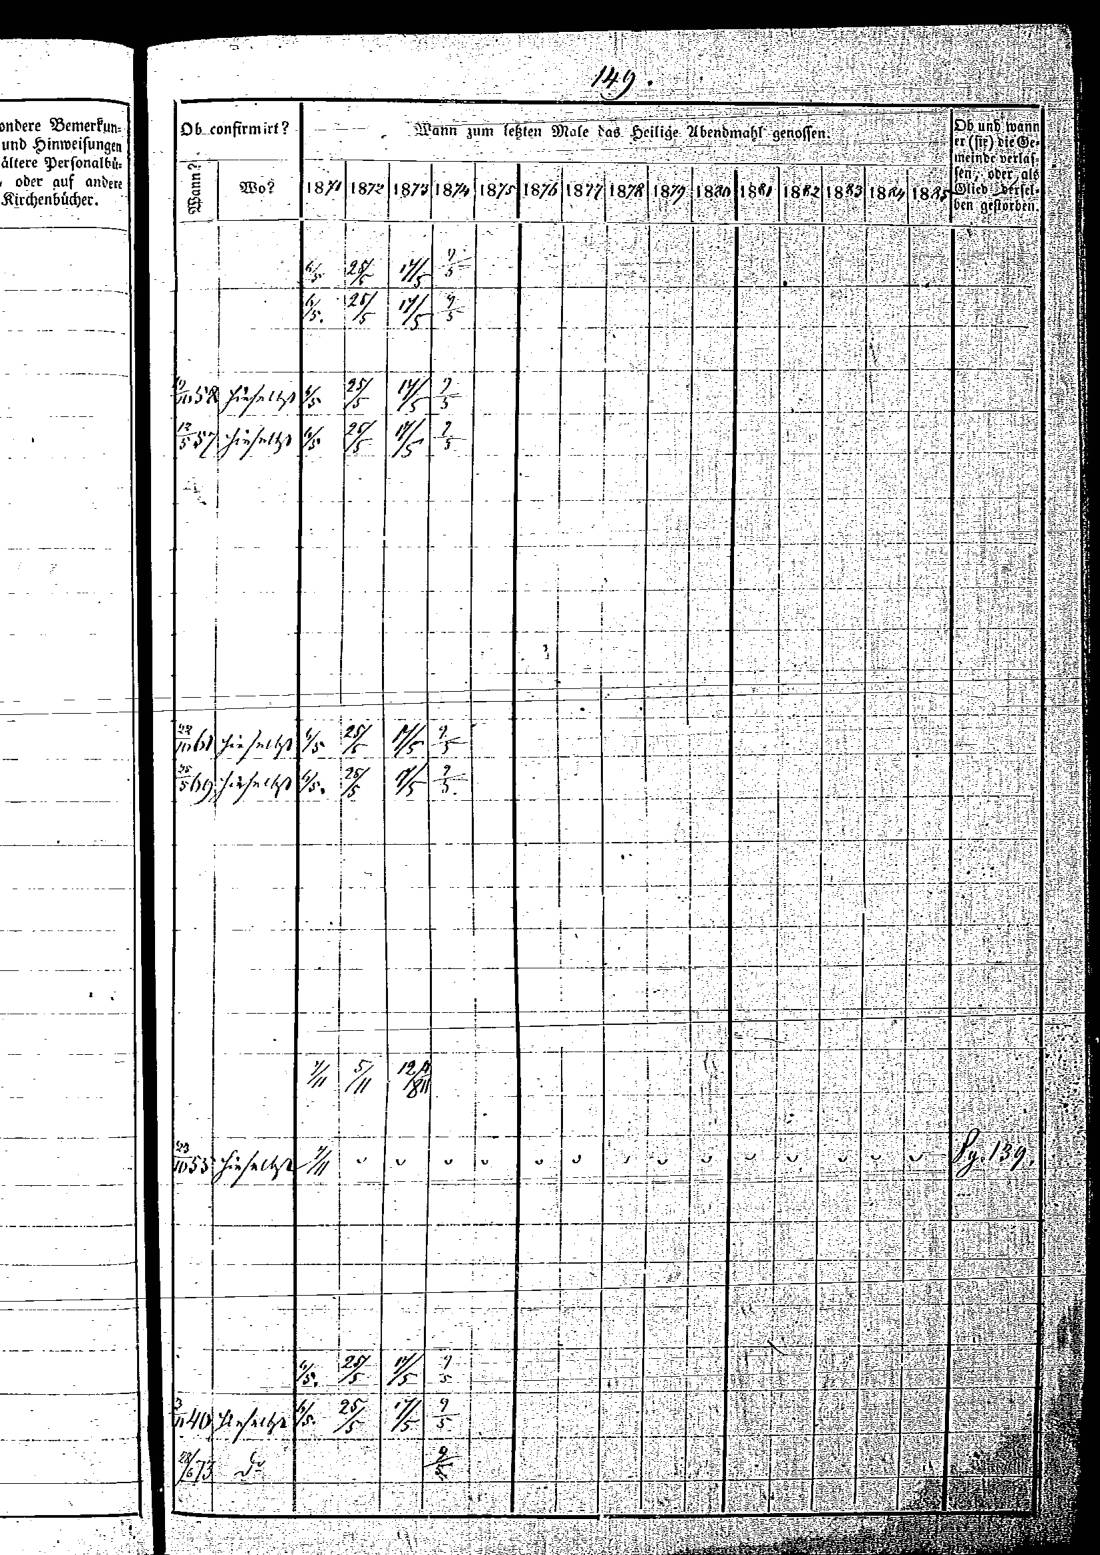 149.
ondere Bemerkun-
und Hinweisungen
ältere Personalbü-
, oder auf andere
Kirchenbücher.
Ob confirmirt?
Wann zum letzten Male das Heilige Abendmahl genossen.
Ob und wann
er (sie) die Ge-
meinde verlas-
sen, oder als
Glied dersel-
ben gestorben.
Wann? Wo? 1871 1872 1873 1874 1875 1876 1877 1878 1879 1880 1881 1882 1883 1884 1885
6/5 25/5 17/5 9/5
6/5. 25/5 17/5 9/5
58 hieselbst 6/5 25/5 17/5 9/5
12/5 57 hieselbst 6/5 25/5 17/5 9/5
61 hieselbst 6/5 25/5 17/5 9/5
25/5 69 hieselbst 6/5. 25/5 17/5 9/5
7/11 5/11
23/10 55 hieselbst 7/11 Pg. 139.
6/5. 25/5 17/5 9/5
40 hieselbst 6/5. 25/5 17/5 9/5
73 do 9/5